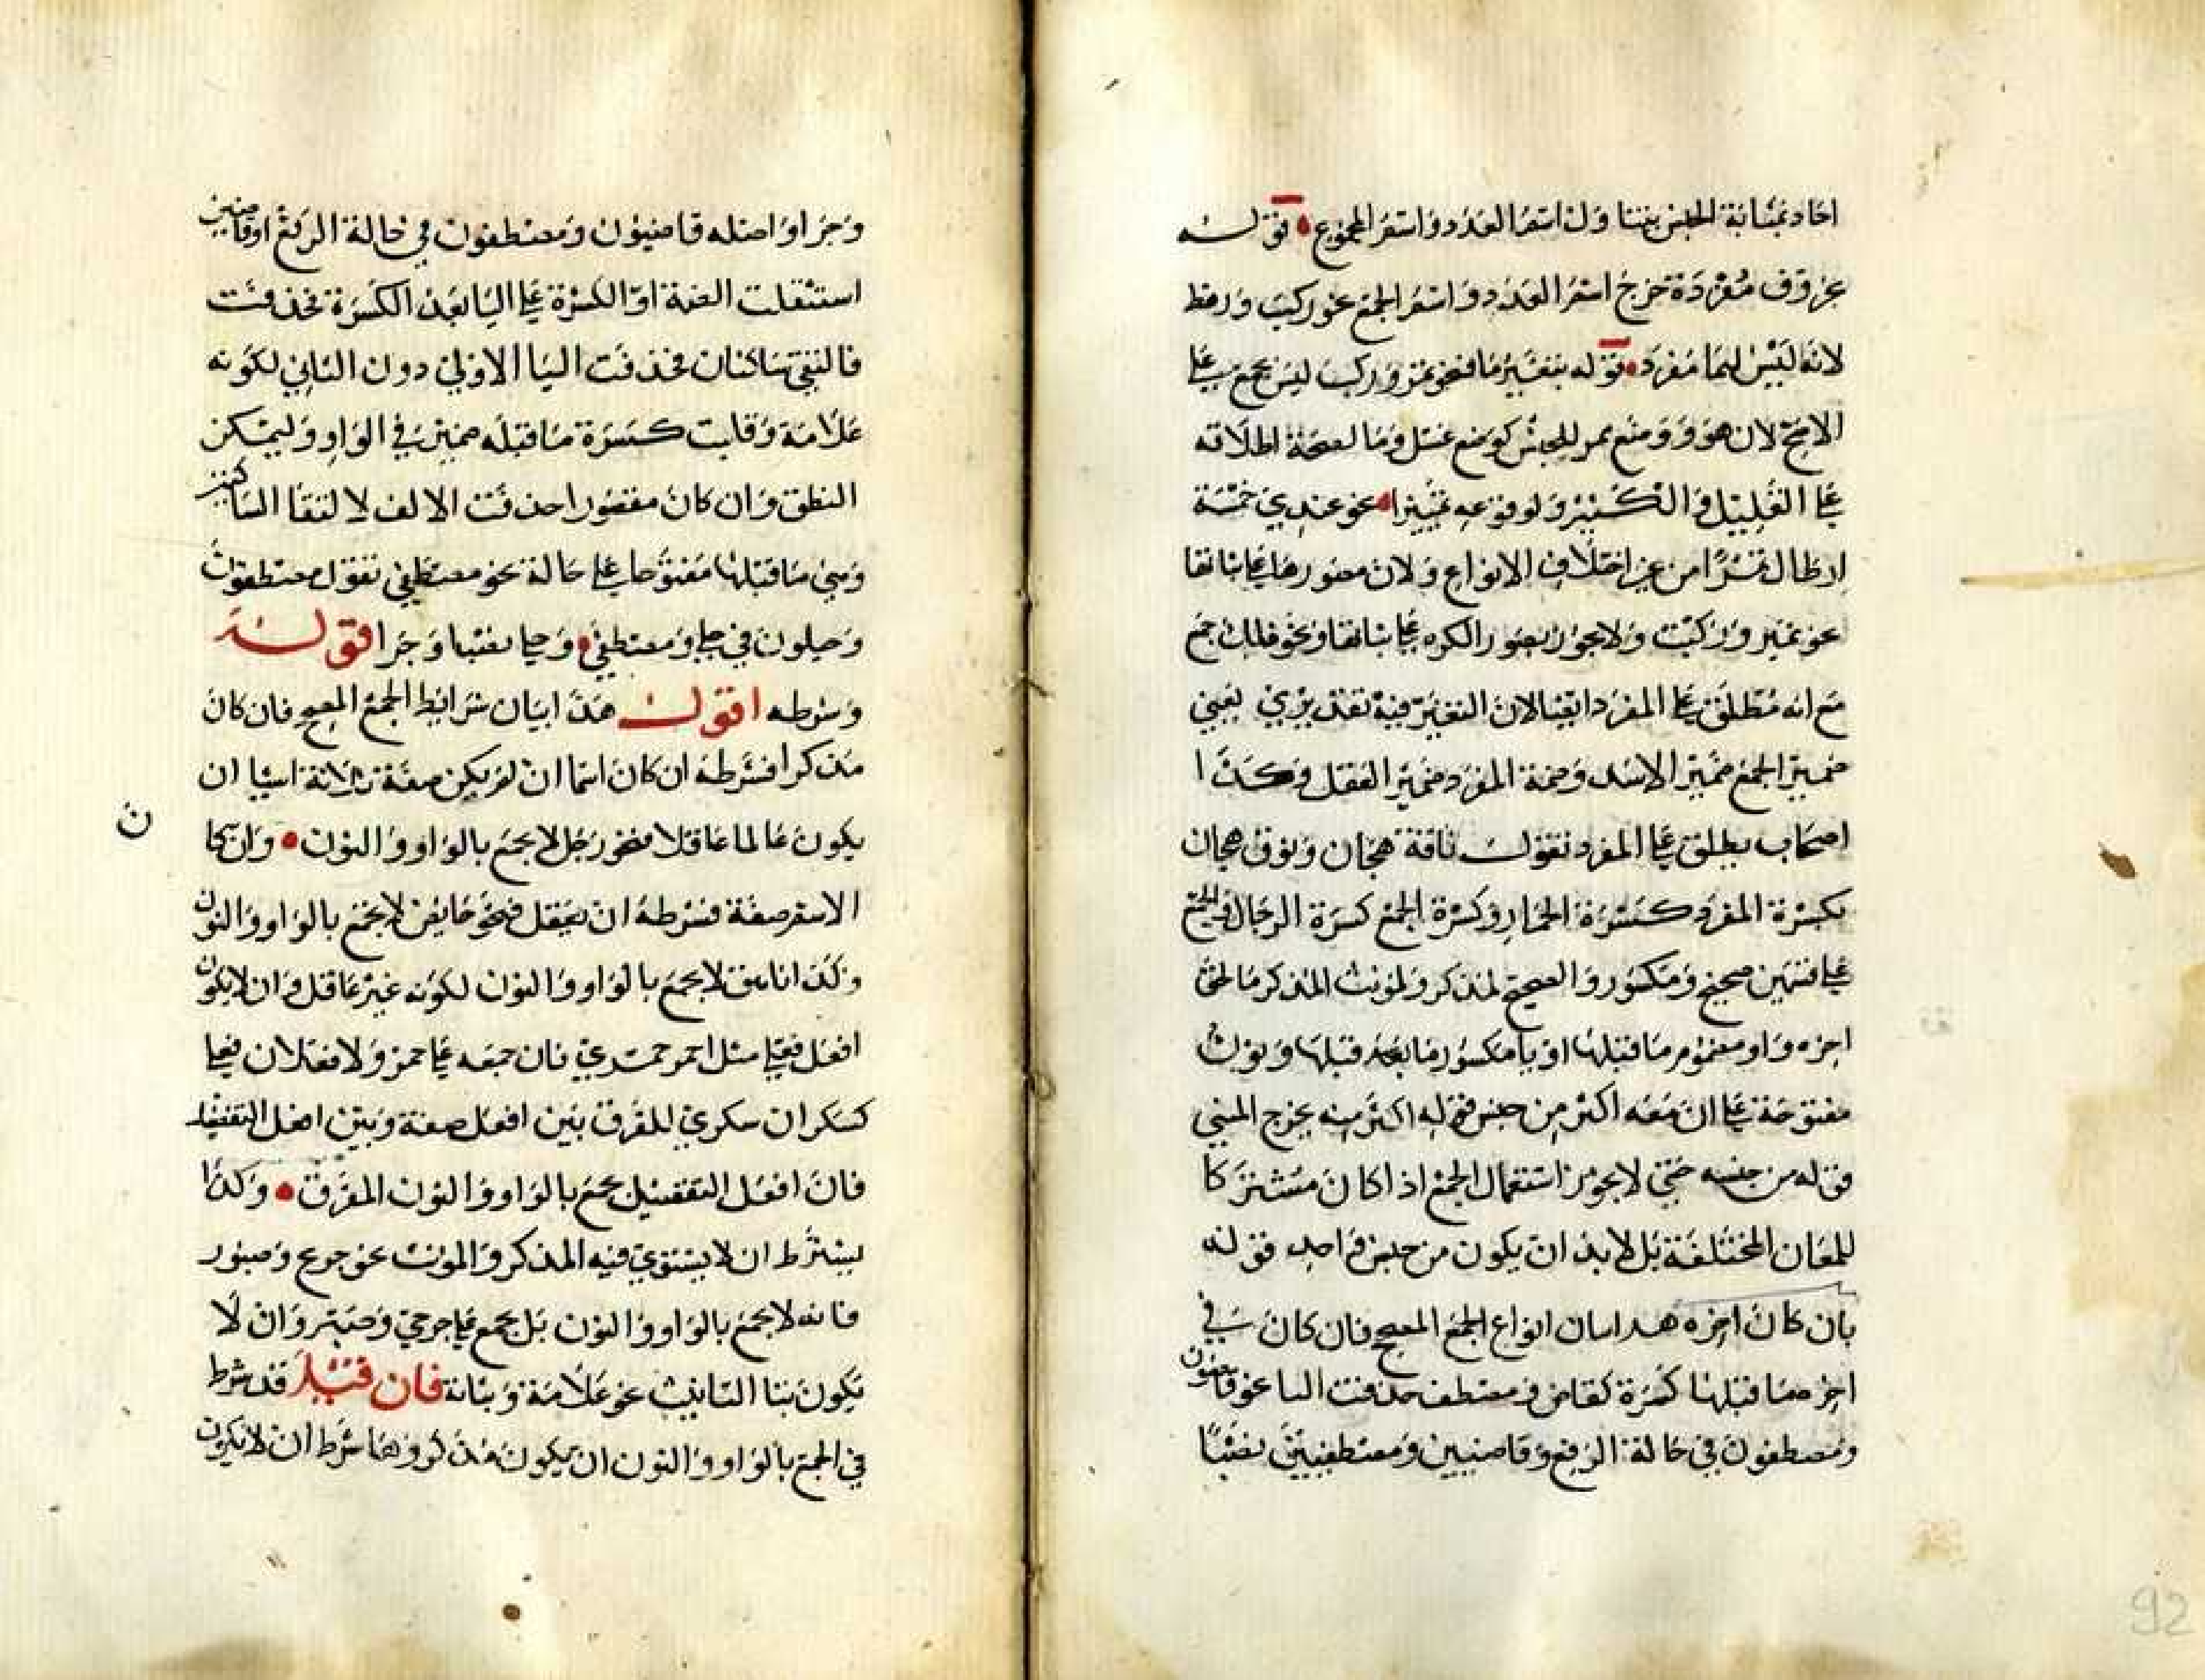 احاد بمثابة الجنس يتناول اسم العدد واسم الجموع قوله
حروف مفردة خرج اسم العدد واسم الجمع نحو ركب ورهط
لانه ليس لهما مفرد قوله بتغيير ما فنحو تمر وركب ليس بجمع على
الاصح لان هو ووضع تمر للجنس كوضع عسل وما لصحة اطلاقه
على القليل والكثير ولوقوعه تمييزا نحو عندي خمسة
ارطال تمرا من غير اختلاف الانواع ولان مصغرها على بنائها
نحو تمير وركيب ولا يجوز تصغير الكثرة على بنائها ونحو فلك جمع
مع انه مطلق على المفرد ايضا لان التغيير فيه تقديري يعني
ضمة الجمع ضمة الاسد وضمة المفرد ضمة القفل وكذا
اصحاب يطلق على المفرد تقول ناقة هجان ونوق هجان
بكسرة المفرد كسرة الحمار وكسرة الجمع كسرة الرجال والجمع
على قسمين صحيح ومكسور والصحيح لمذكر ولمؤنث المذكر ما لحق
اخره واو مضموم ما قبلها او يا مكسور ما قبلها ونون
مفتوحة على ان معه اكثر من جنس قوله اكثر منه يخرج المثنى
قوله من جنسه حتى لا يجوز استعمال الجمع اذا كان مشتركا
للمعان المختلفة بل لا بد ان يكون من جنس واحد قوله
بان كان اخره هذا بيان انواع الجمع الصحيح فان كان في
اخره ما قبلها كسرة كقاض ومصطف حذفت اليا نحو قاضون
ومصطفون في حالة الرفع وقاضيين ومصطفيين نصبا
وجرا واصله قاضيون ومصطفون في حالة الرفع او قاضيين
استثقلت الضمة او الكسرة على اليا بعد الكسرة فحذفت
فالتقى ساكنان فحذفت اليا الاولى دون الثاني لكونه
علامة وقلبت كسرة ما قبله ضمة في الواو وليمكن
النطق وان كان مقصورا حذفت الالف لالتقا الساكنين
وبقي ما قبلها مفتوحا على حالة نحو مصطفى تقول مصطفون
وحبلون في حبلى ومصطفى وحبلى نصبا وجرا قوله
وشرطه اقول هذا بيان شرائط الجمع الصحيح فان كان
مذكرا فشرطه ان كان اسما ان لم يكن صفة ثلاثة اشيا ان
يكون عالما عاقلا فنحو رجل لا يجمع بالواو والنون وان كا
ن
الاسم صفة فشرطه ان يعقل فنحو حايض لا يجمع بالواو والنون
وكذا ناهق لا يجمع بالواو والنون لكونه غير عاقل وان لا يكون
افعل فعلى مثل احمر حمرى فان جمعه على حمر ولا فعلان فعلى
كسكران سكرى للفرق بين افعل صفة وبين افعل التفضيل
فان افعل التفضيل يجمع بالواو والنون المفرق وكذا
يشترط ان لا يستوي فيه المذكر والمونث نحو جريح وصبور
فانه لا يجمع بالواو والنون بل يجمع على جرحى وصبر وان لا
يكون بتا التانيث نحو علامة ونسابة فان قيل قد شرط
في الجمع بالواو والنون ان يكون مذكر وهنا شرط ان لا يكون
92